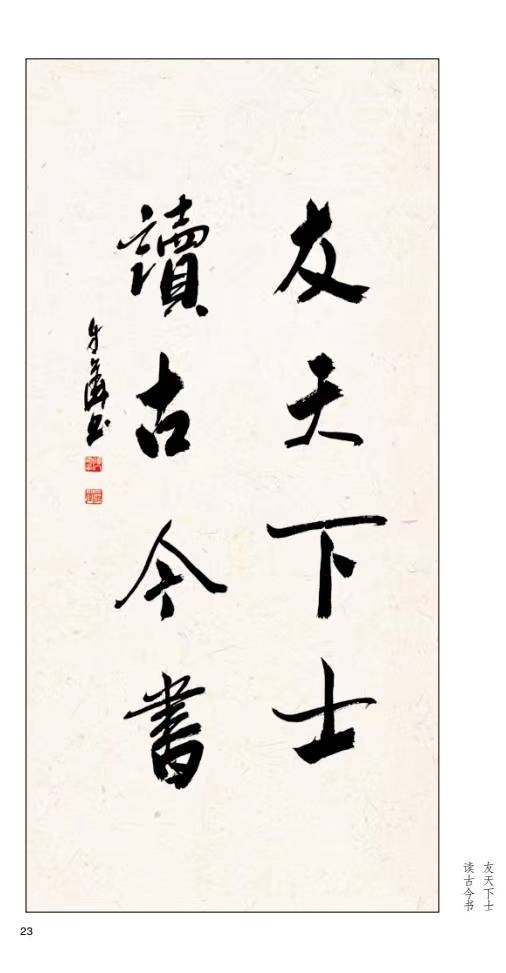 友天下士
讀古今書
友天下士
读古今书
23